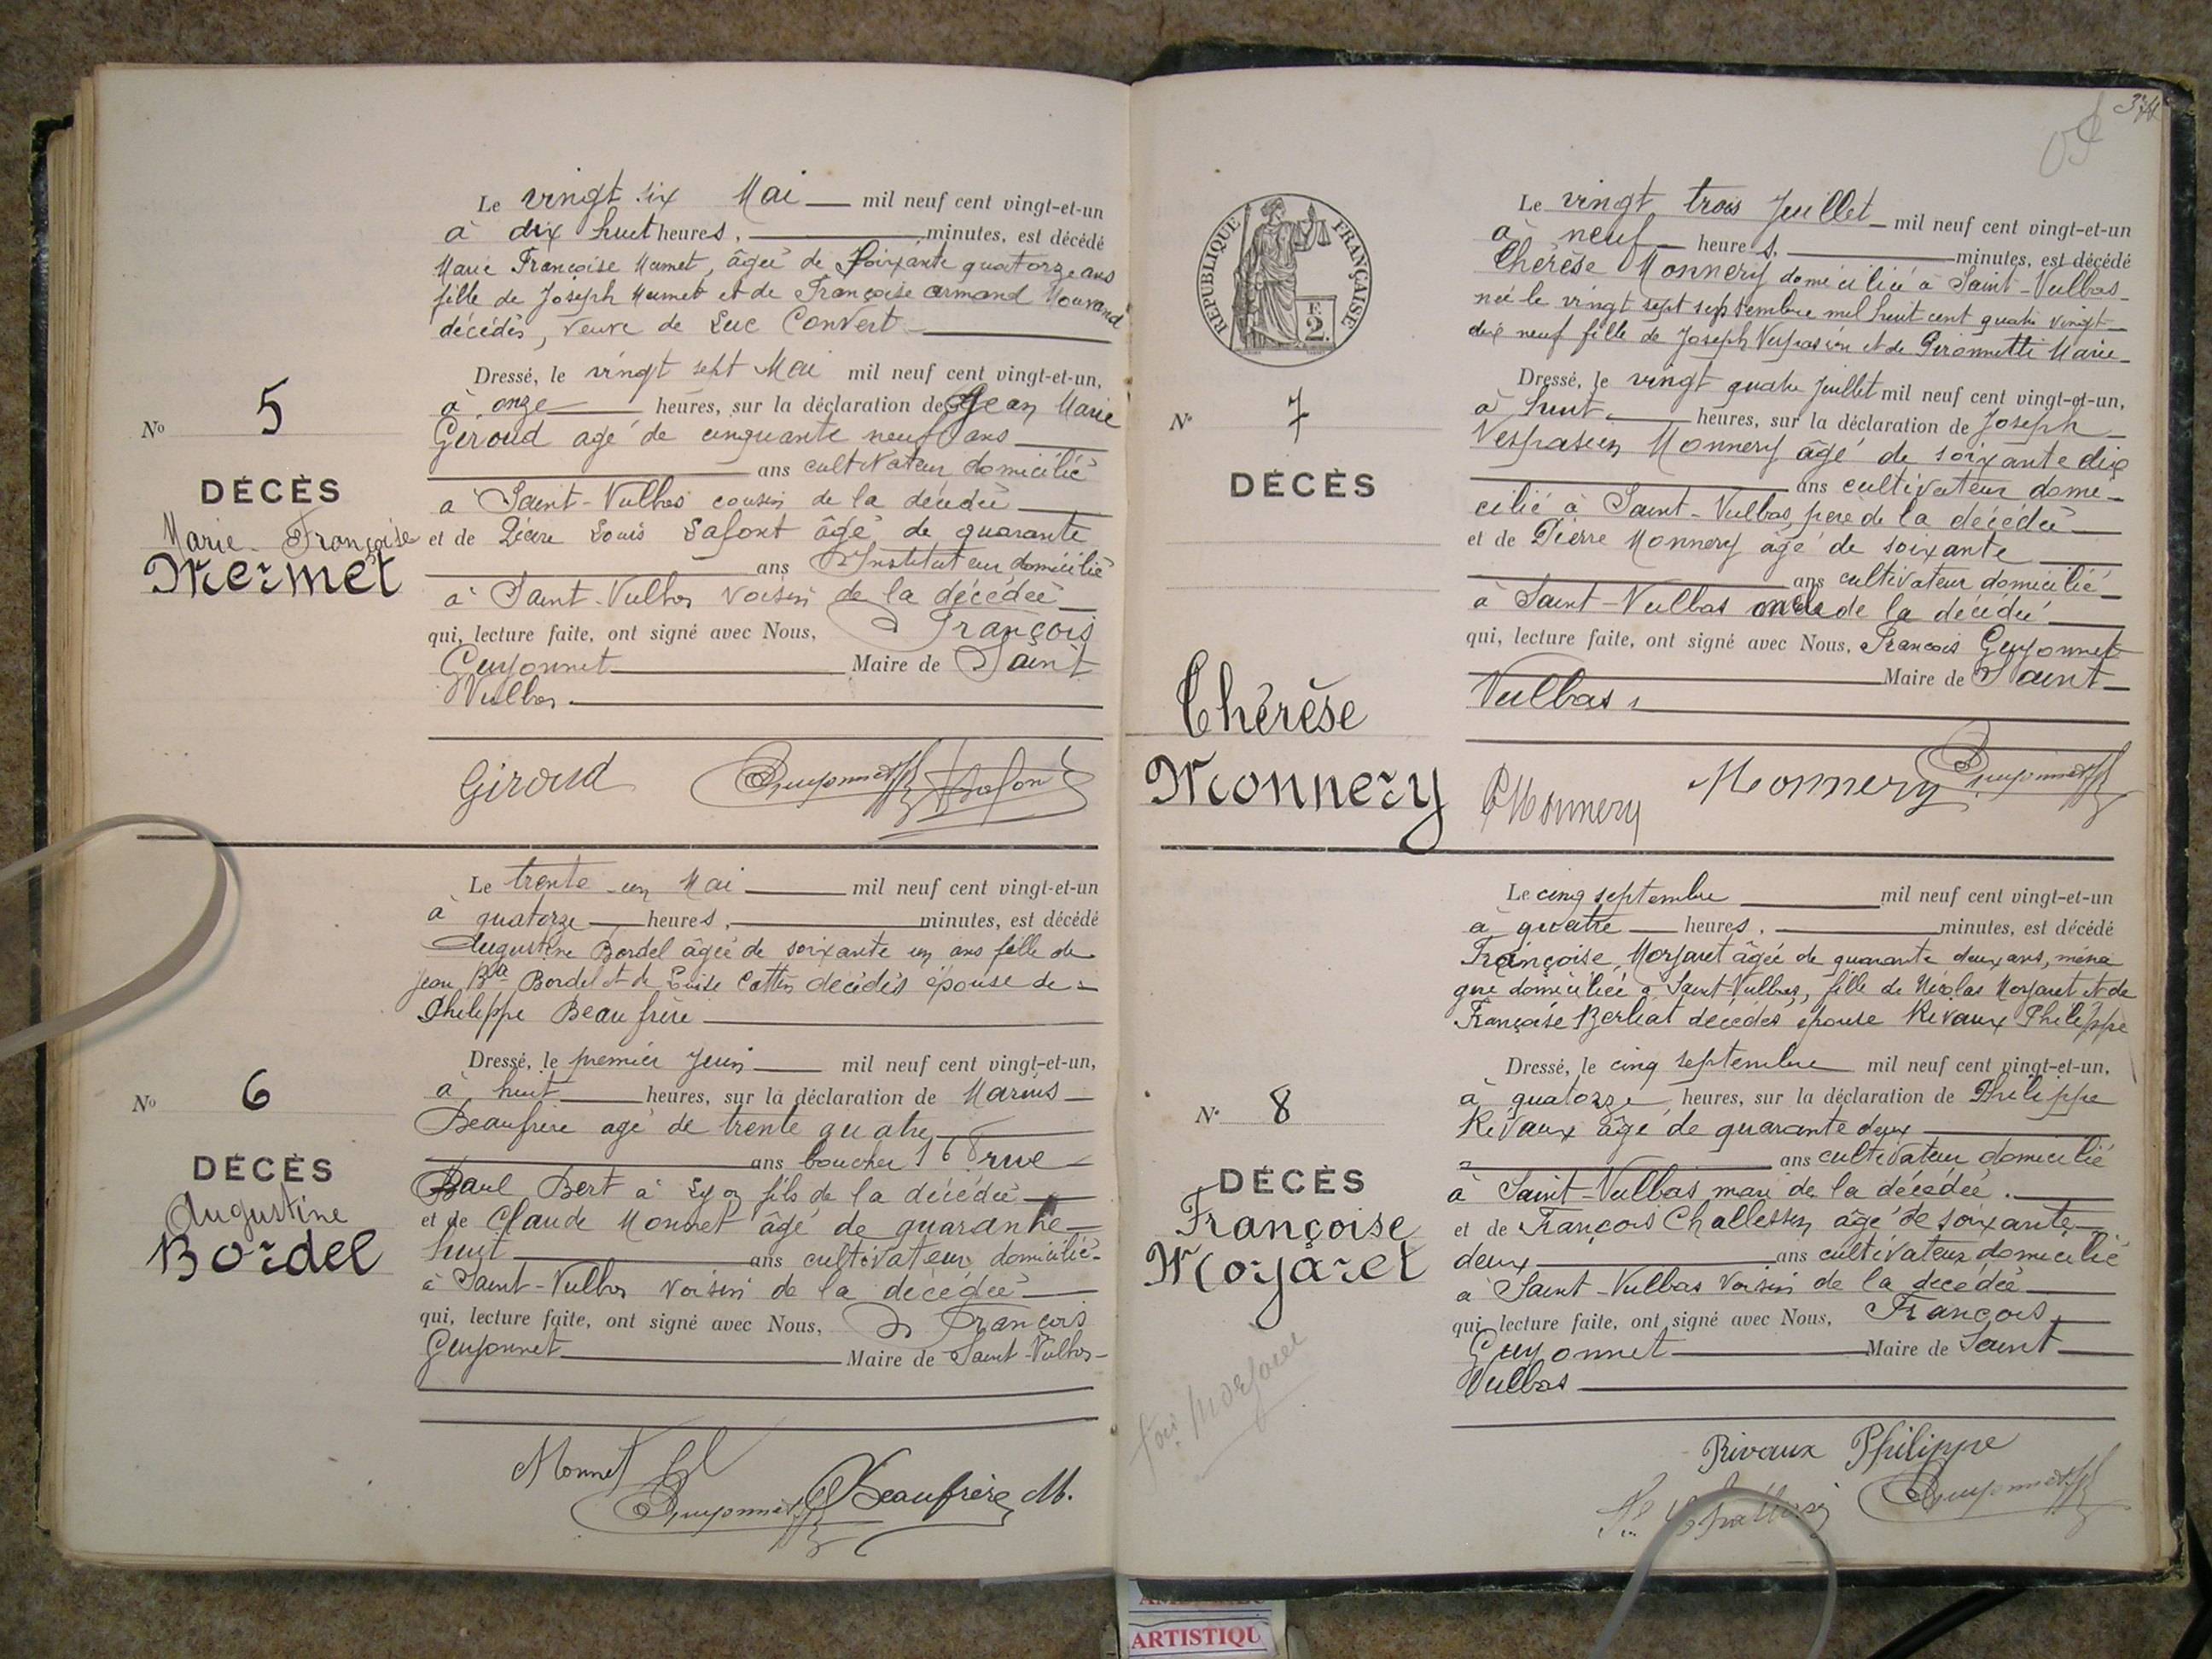 Le vingt six Mai mil neuf cent vingt-et-un
à dix huit heures, minutes, est décédé
Marie Françoise Mermet, âgée de soixante quatorze ans
fille de Joseph Mermet et de Françoise Armand Mouvand
décédés, veuve de Luc Convert
Dressé, le vingt sept Mai mil neuf cent vingt-et-un,
à onze heures, sur la déclaration de Jean Marie
Giroud agé de cinquante neuf ans
ans cultivateur, domicilié
à Saint-Vulbas cousin de la décédée
et de Pierre Louis Lafont âgé de quarante
ans Instituteur domicilié
à Saint-Vulbas voisin de la décédée
qui, lecture faite, ont signé avec Nous, François
Guyonnet Maire de Saint
Vulbas
No 5
DÉCÈS
Marie-Françoise
Mermet
Giroud Guyonnet Lafont
Le trente-un Mai mil neuf cent vingt-et-un
à quatorze heures, minutes, est décédé
Augustine Bordel âgée de soixante un ans fille de
Jean Bte Bordel et de Louise Cottin décédés épouse de
Philippe Beaufrère
Dressé, le premier Juin mil neuf cent vingt-et-un,
à huit heures, sur la déclaration de Marius
Beaufrère agé de trente quatre
ans boucher 168 rue
Paul Bert à Lyon fils de la décédée
et de Claude Monnet âgé de quarante
huit ans cultivateur domicilié
à Saint-Vulbas voisin de la décédée
qui, lecture faite, ont signé avec Nous, François
Guyonnet Maire de Saint-Vulbas
No 6
DÉCÈS
Augustine
Bordel
Monnet Cl
Guyonnet Beaufrère M.
RÉPUBLIQUE FRANÇAISE
2
Le vingt trois Juillet mil neuf cent vingt-et-un
à neuf heures, minutes, est décédé
Thérèse Monnery domiciliée à Saint-Vulbas
née le vingt sept septembre mil huit cent quatre vingt
dix neuf fille de Joseph Vespasien et de Peronnetti Marie
Dressé, le vingt quatre Juillet mil neuf cent vingt-et-un,
à huit heures, sur la déclaration de Joseph
Vespasien Monnery âgé de soixante dix
ans cultivateur domi-
cilié à Saint-Vulbas, père de la décédée
et de Pierre Monnery âgé de soixante
ans cultivateur domicilié
à Saint-Vulbas oncle de la décédée
qui, lecture faite, ont signé avec Nous, François Guyonnet
Maire de Saint-
Vulbas
No 7
DÉCÈS
Thérèse
Monnery
PMonnery Monnery Guyonnet
Le cinq septembre mil neuf cent vingt-et-un
à quatre heures, minutes, est décédé
Françoise Morjaret âgée de quarante deux ans, ména
gère domiciliée à Saint-Vulbas, fille de Nicolas Morjaret et de
Françoise Berliat décédés épouse Rivaux Philippe
Dressé, le cinq septembre mil neuf cent vingt-et-un,
à quatorze heures, sur la déclaration de Philippe
Rivaux âgé de quarante deux
ans cultivateur domicilié
à Saint-Vulbas mari de la décédée.
et de François Challessin âgé de soixante
deux ans cultivateur domicilié
à Saint-Vulbas voisin de la décédée
qui, lecture faite, ont signé avec Nous, François
Guyonnet Maire de Saint
Vulbas
No 8
DÉCÈS
Françoise
Morjaret
Rivaux Philippe
Guyonnet
ARTISTIQU